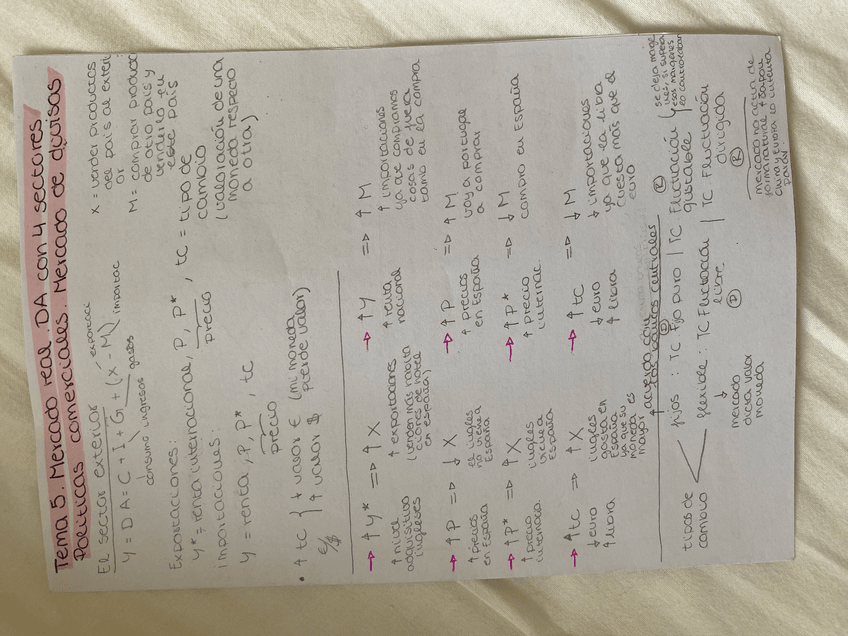 Tema 5. Mercado real. DA con 4 sectores.
Políticas comerciales. Mercado de divisas
El sector exterior
Y = DA = C + I + G + (X - M)
exportaci
importac
gastos
ingresos
consumo
X = vender productos
del país al exteri
or
M = comprar produc
de otro país y
venderlo en
este país
Exportaciones:
Y* = renta internacional, P, P*, tc = tipo de
cambio
precio
(valoración de una
moneda respecto
a otra)
Importaciones:
Y = renta, P, P*, tc
precio
• ↑ tc { ↓ valor € (mi moneda
€/$ ↑ valor $ pierde valor)
→ ↑Y* => ↑X
↑ nivel
adquisitivo
ingleses
↑ exportaciones
(venden más habita
ciones de hotel
en españa)
→ ↑Y => ↑M
↑ renta
nacional
↑ importaciones
ya que compramos
cosas de fuera
tanto en la compra
→ ↑P => ↓X
↑ precios
en España
el inglés
no viene a
España
→ ↑P => ↑M
↑ precios
en España
voy a portugal
a comprar
→ ↑P* => ↑X
↑ precio
internaco.
inglés
viene a
España
→ ↑P* => ↓M
↑ precio
internac.
compro en España
→ ↑tc => ↑X
↓ euro
↑ libra
inglés
gasta en
España
ya que su
moneda es
mayor
→ ↑tc => ↓M
↓ euro
↑ libra
↓ importaciones
ya que la libra
cuesta más que el
euro
↑ acuerdo con
los bancos centrales
tipos de
cambio
fijos : TC Fijo puro | TC Fluctuación
ajustable
flexible : TC Fluctuación | TC. Fluctuación
libre
dirigida
↓
mercado
dicta valor
moneda
se deja
si supera
esos márgenes
mercado no actúa de
forma natural